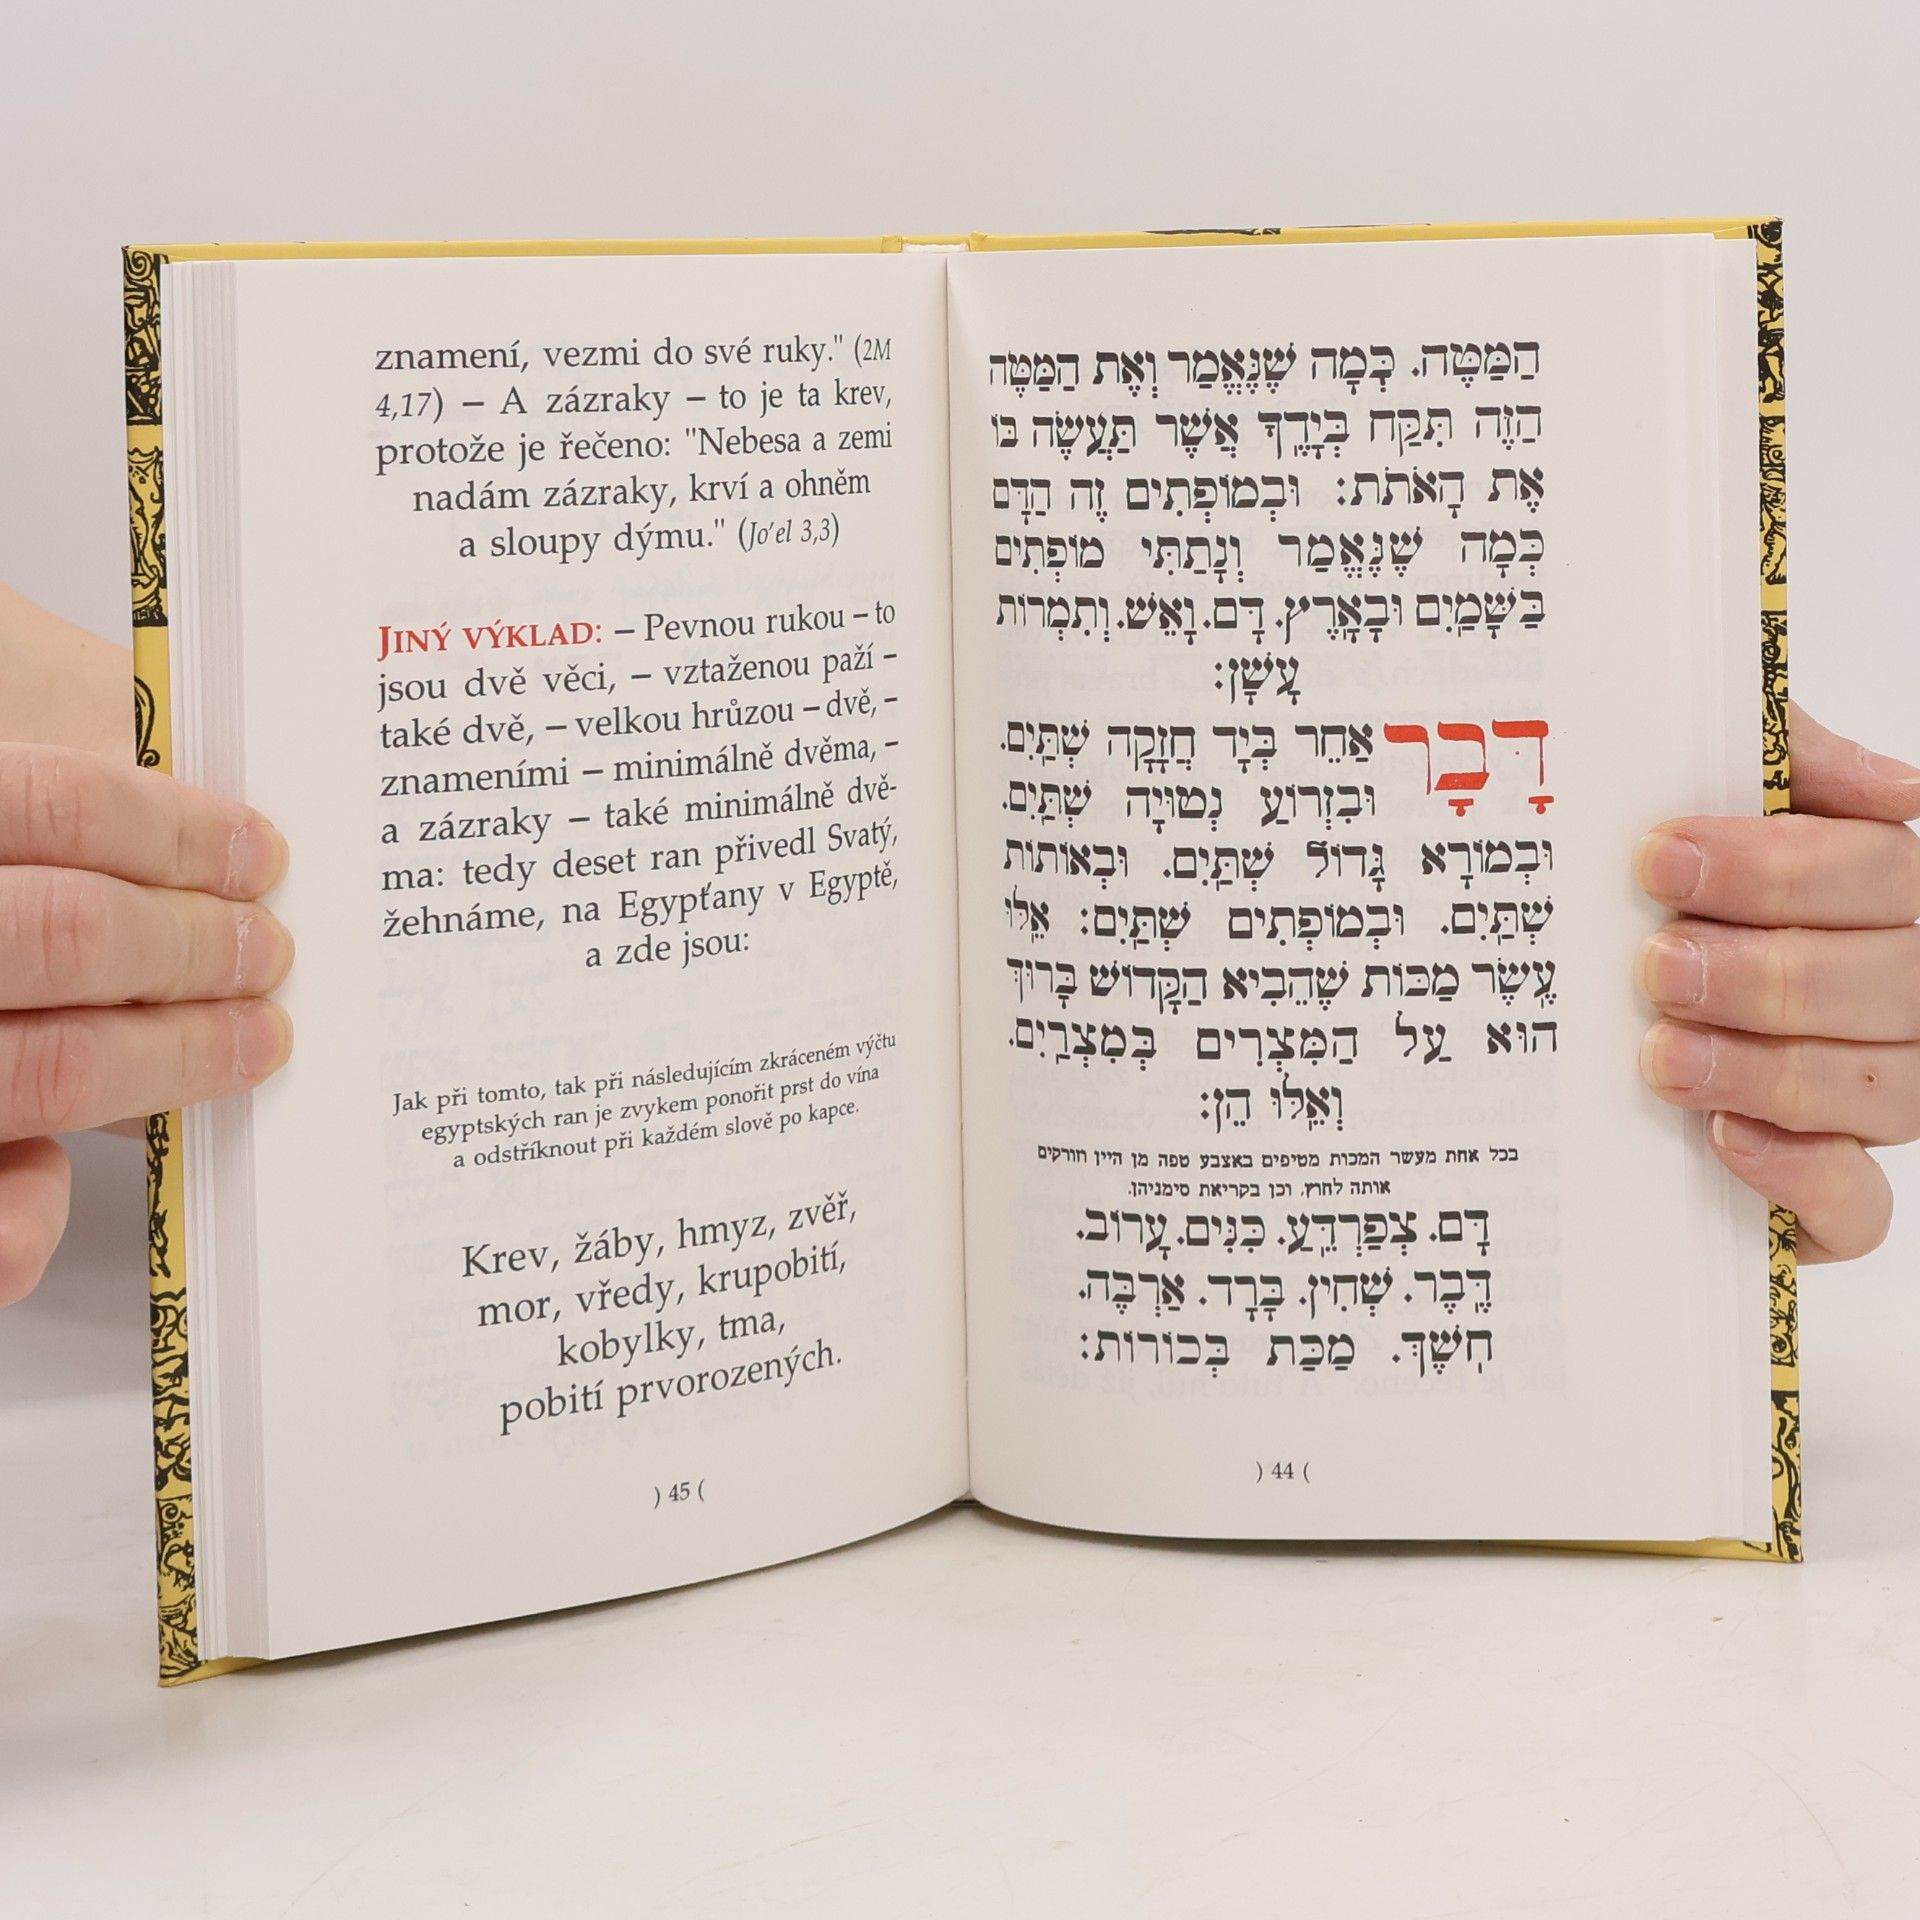 znamení, vezmi do své ruky." (2M
4,17) – A zázraky – to je ta krev,
protože je řečeno: "Nebesa a zemi
nadám zázraky, krví a ohněm
a sloupy dýmu." (Jo'el 3,3)
JINÝ VÝKLAD: – Pevnou rukou – to
jsou dvě věci, – vztaženou paží –
také dvě, – velkou hrůzou – dvě, –
znameními – minimálně dvěma, –
a zázraky – také minimálně dvě-
ma: tedy deset ran přivedl Svatý,
žehnáme, na Egypťany v Egyptě,
a zde jsou:
Jak při tomto, tak při následujícím zkráceném výčtu
egyptských ran je zvykem ponořit prst do vína
a odstříknout při každém slově po kapce.
Krev, žáby, hmyz, zvěř,
mor, vředy, krupobití,
kobylky, tma,
pobití prvorozených.
) 45 (
הַמַּטֶּה. כְּמָה שֶׁנֶּאֱמַר וְאֶת הַמַּטֶּה
הַזֶּה תִּקַּח בְּיָדֶךָ אֲשֶׁר תַּעֲשֶׂה בּוֹ
אֶת הָאֹתֹת: וּבְמוֹפְתִים זֶה הַדָּם
כְּמָה שֶׁנֶּאֱמַר וְנָתַתִּי מוֹפְתִים
בַּשָּׁמַיִם וּבָאָרֶץ. דָּם. וָאֵשׁ. וְתִמְרוֹת
עָשָׁן:
דָּבָר אַחֵר בְּיָד חֲזָקָה שְׁתַּיִם.
וּבִזְרוֹעַ נְטוּיָה שְׁתַּיִם.
וּבְמוֹרָא גָּדוֹל שְׁתַּיִם. וּבְאוֹתוֹת
שְׁתַּיִם. וּבְמוֹפְתִים שְׁתַּיִם: אֵלּוּ
עֶשֶׂר מַכּוֹת שֶׁהֵבִיא הַקָּדוֹשׁ בָּרוּךְ
הוּא עַל הַמִּצְרִים בְּמִצְרַיִם.
וְאֵלּוּ הֵן:
בכל אחת מעשר המכות מטיפים באצבע טפה מן היין וזורקים
אותה לחוץ, וכן בקריאת סימניהן.
דָּם. צְפַרְדֵּעַ. כִּנִּים. עָרוֹב.
דֶּבֶר. שְׁחִין. בָּרָד. אַרְבֶּה.
חֹשֶׁךְ. מַכַּת בְּכוֹרוֹת:
) 44 (